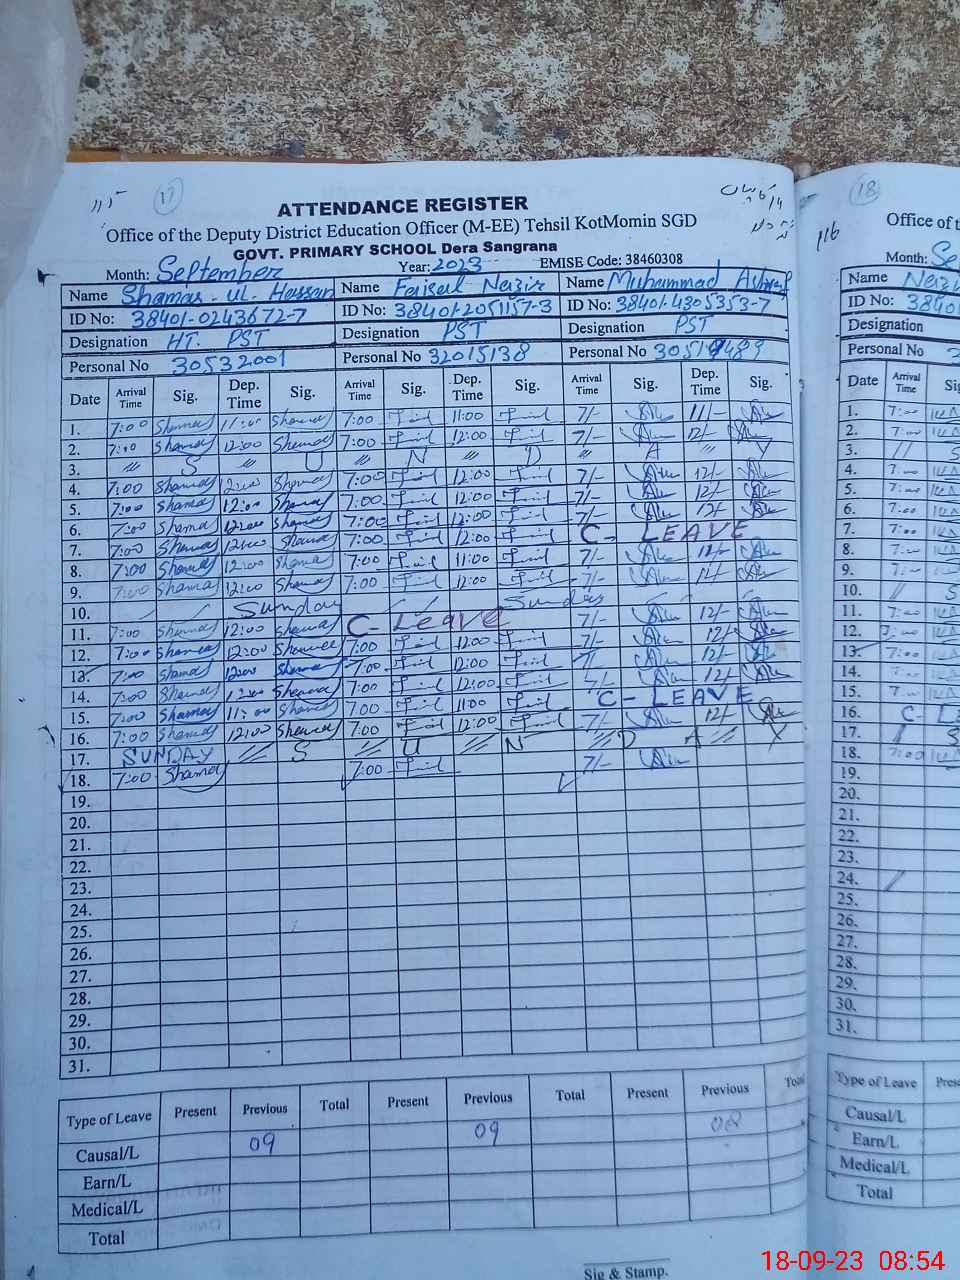 17
ATTENDANCE REGISTER
Office of the Deputy District Education Officer (M-EE) Tehsil KotMomin SGD
GOVT. PRIMARY SCHOOL Dera Sangrana
Month: September Year: 2023 EMISE Code: 38460308
Name Shamas-ul-Hassan Name Faisal Nazir Name Muhammad Ashraf
ID No: 38401-0243672-7 ID No: 38401-2051157-3 ID No: 38401-4305353-7
Designation HT. PST Designation PST Designation PST
Personal No 30532001 Personal No 32015138 Personal No
Date Arrival Time Sig. Dep. Time Sig. Arrival Time Sig. Dep. Time Sig. Arrival Time Sig. Dep. Time Sig.
1. 7:00 Shamas 11:00 Shamas 7:00 11:00 7/- 11/-
2. 7:00 Shamas 12:00 Shamas 7:00 12:00 7/- 12/-
3. S U N D A Y
4. 7:00 Shamas 12:00 Shamas 7:00 12:00 7/- 12/-
5. 7:00 Shamas 12:00 Shamas 7:00 12:00 7/- 12/-
6. 7:00 Shamas 12:00 Shamas 7:00 12:00 7/- 12/-
7. 7:00 Shamas 12:00 Shamas 7:00 12:00 C- LEAVE
8. 7:00 Shamas 12:00 Shamas 7:00 11:00 7/- 12/-
9. 7:00 Shamas 12:00 Shamas 7:00 12:00 7/-
10. Sunday Sunday
11. 7:00 Shamas 12:00 Shamas C- Leave 7/- 12/-
12. 7:00 Shamas 12:00 Shamas 7:00 12:00 7/- 12/-
13. 7:00 Shamas 12:00 Shamas 7:00 12:00 12/-
14. 7:00 Shamas 12:00 Shamas 7:00 12:00 12/-
15. 7:00 Shamas 11:00 Shamas 7:00 11:00 C- LEAVE
16. 7:00 Shamas 12:00 Shamas 7:00 12:00 7/- 12/-
17. SUNDAY S U N D A Y
18. 7:00 Shamas 7:00 7/-
19.
20.
21.
22.
23.
24.
25.
26.
27.
28.
29.
30.
31.
Type of Leave Present Previous Total Present Previous Total Present Previous Total
Causal/L 09 09 08
Earn/L
Medical/L
Total
Sig & Stamp.
18
Office of t
Month: Se
Name
ID No: 38401
Designation
Personal No
Date Arrival Time Sig
1. 7:00
2. 7:00
3. // S
4. 7:00
5. 7:00
6. 7:00
7. 7:00
8. 7:00
9. 7:00
10. // S
11. 7:00
12. 7:00
13. 7:00
14. 7:00
15. 7:00
16. C- L
17. S
18. 7:00
19.
20.
21.
22.
23.
24.
25.
26.
27.
28.
29.
30.
31.
Type of Leave Pres
Causal/L
Earn/L
Medical/L
Total
18-09-23 08:54